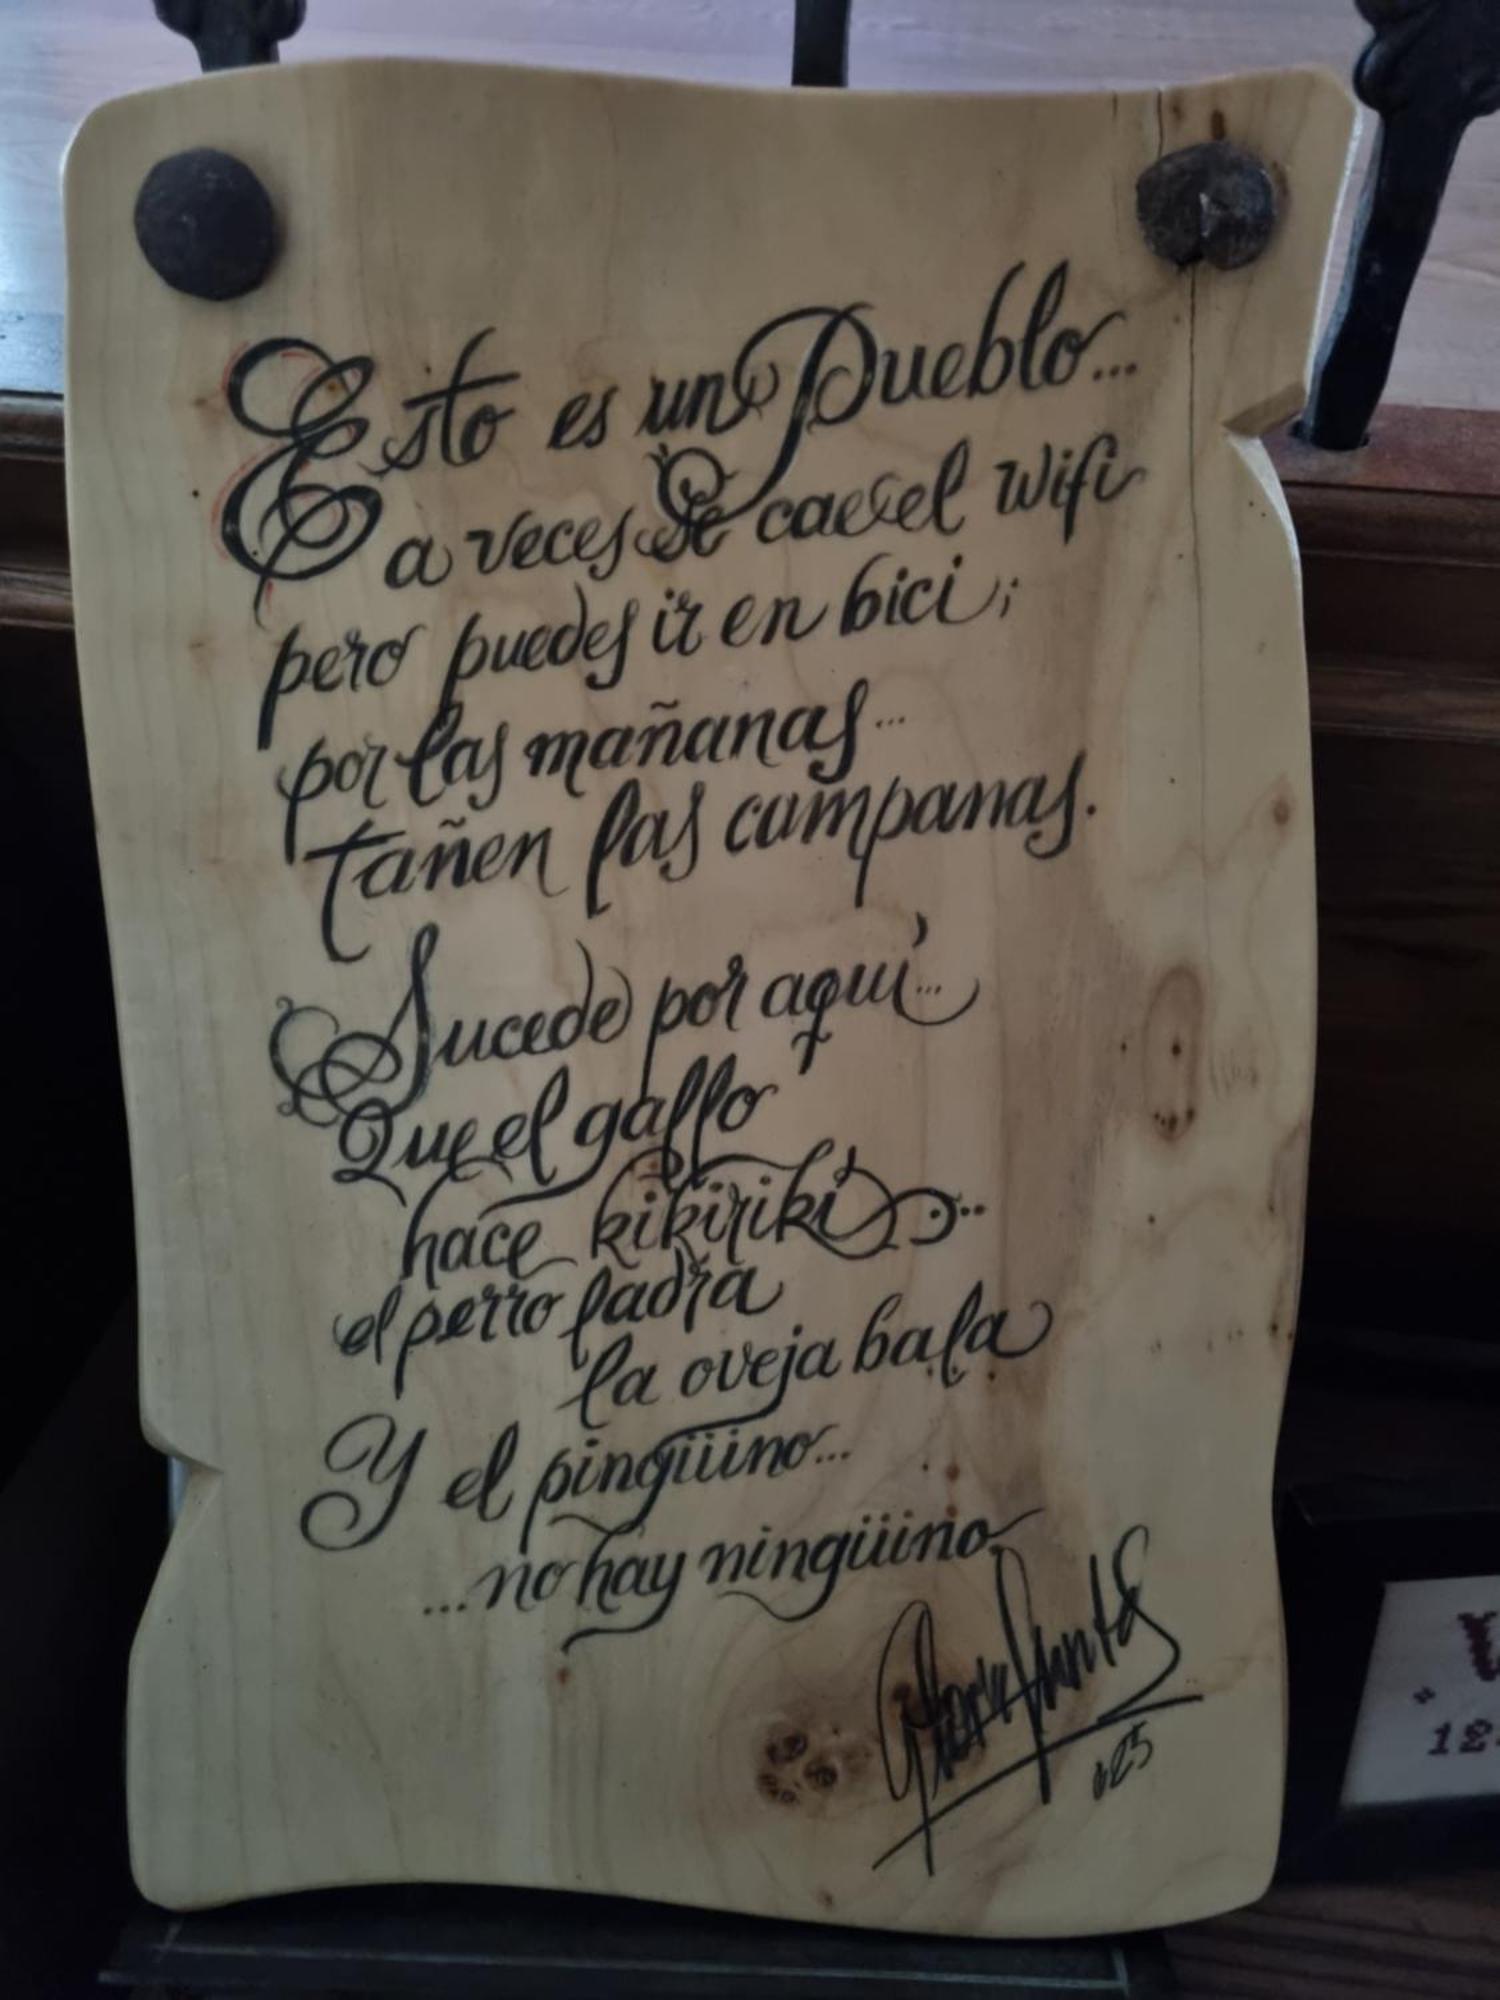 Esto es un Pueblo...
a veces se cae el wifi
pero puedes ir en bici;
por las mañanas...
tañen las campanas.
Sucede por aquí...
Que el gallo
hace kikirikí...
el perro ladra
la oveja bala
Y el pingüino...
...no hay ningüino
12